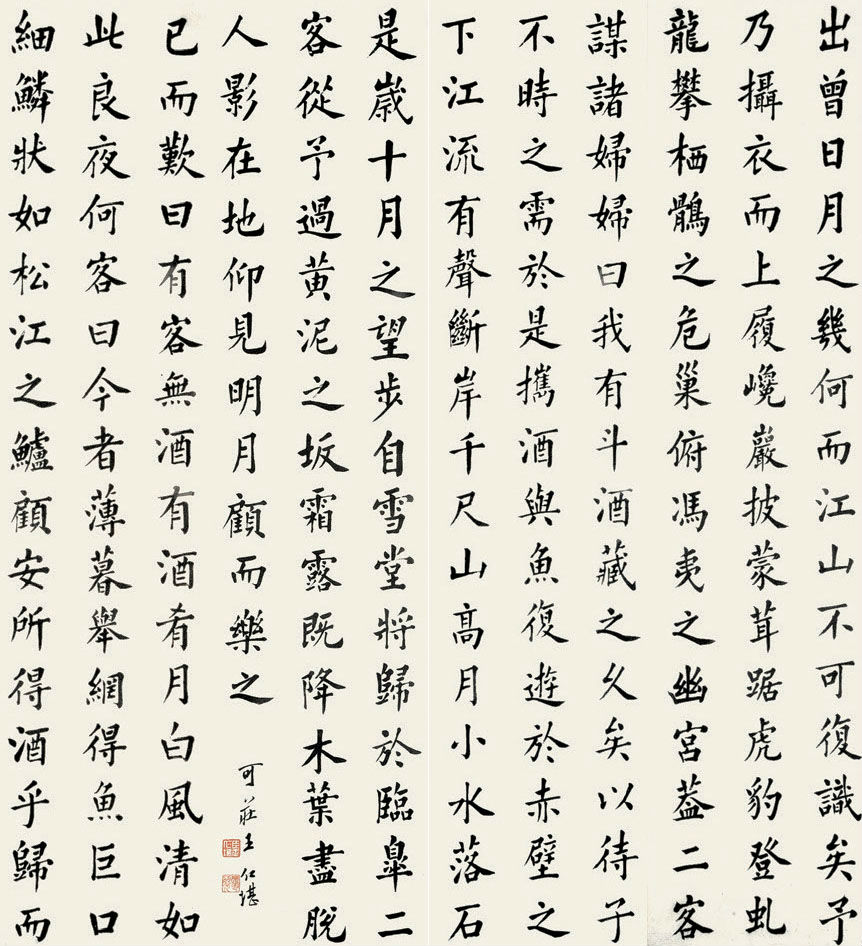 出曾日月之幾何而江山不可復識矣予
乃攝衣而上履巉巖披蒙茸踞虎豹登虬
龍攀栖鶻之危巢俯馮夷之幽宮葢二客
謀諸婦婦曰我有斗酒藏之久矣以待子
不時之需於是攜酒與魚復遊於赤壁之
下江流有聲斷岸千尺山高月小水落石
是歲十月之望步自雪堂將歸於臨皐二
客從予過黃泥之坂霜露既降木葉盡脫
人影在地仰見明月顧而樂之
可莊王仁堪
已而歎曰有客無酒有酒肴月白風清如
此良夜何客曰今者薄暮舉網得魚巨口
細鱗狀如松江之鱸顧安所得酒乎歸而